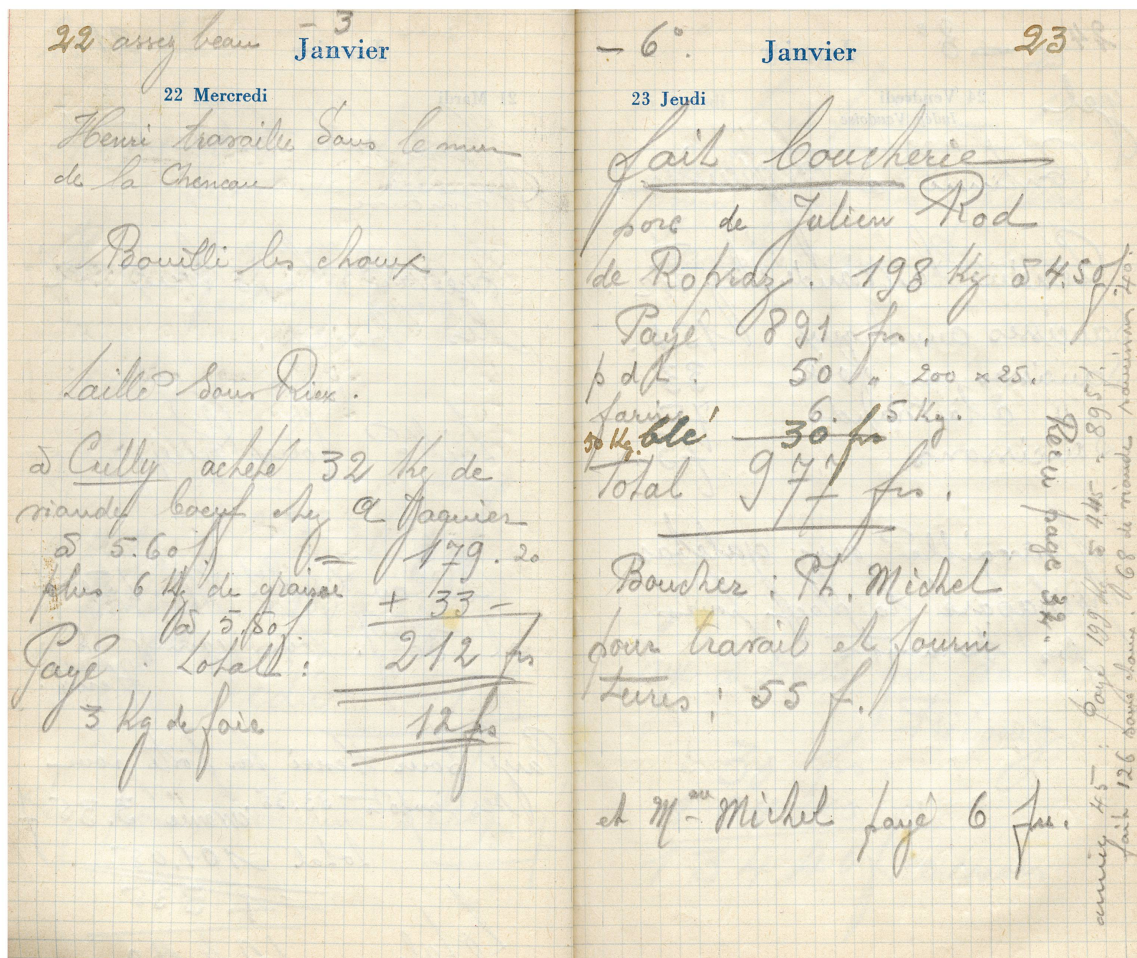 22 assez beau - 3
Janvier
22 Mercredi
Henri travaille dans le mur
de la Cheneau
Bouilli les choux
taillé sous Riex.
à Cully acheté 32 Kg de
viande boeuf chez
à 5.60 f = 179.20
plus 6 Kg de graisse + 33 -
à 5,50 f.
Payé. total: 212 frs
3 Kg de foie 12 frs
- 6°. 23
Janvier
23 Jeudi
fait boucherie
porc de Julien Rod
de Ropraz. 198 Kg à 4.50 f
Payé 891 frs.
p d t. 50 " 200 x 25.
farine 6. 5 Kg.
50 Kg. blé 30 frs
Total 977 frs.
Boucher: Ph. Michel
pour travail et fourni
tures: 55 f.
et Mme Michel payé 6 frs.
Reçu page 32.
année 45: Payé 199 Kg à 4.45 = 895 f.
fait 126 saucissons. 68 de viande